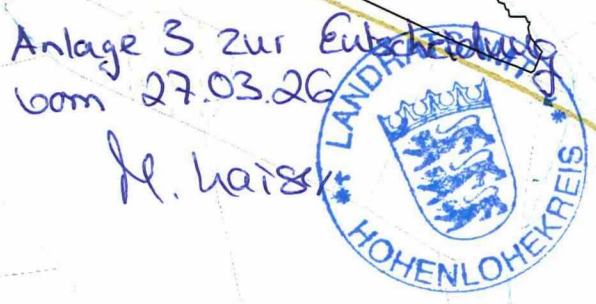 Anlage 3 zur Entscheidung
vom 27.03.26
M. Kaiser
LANDRATSAMT
HOHENLOHEKREIS